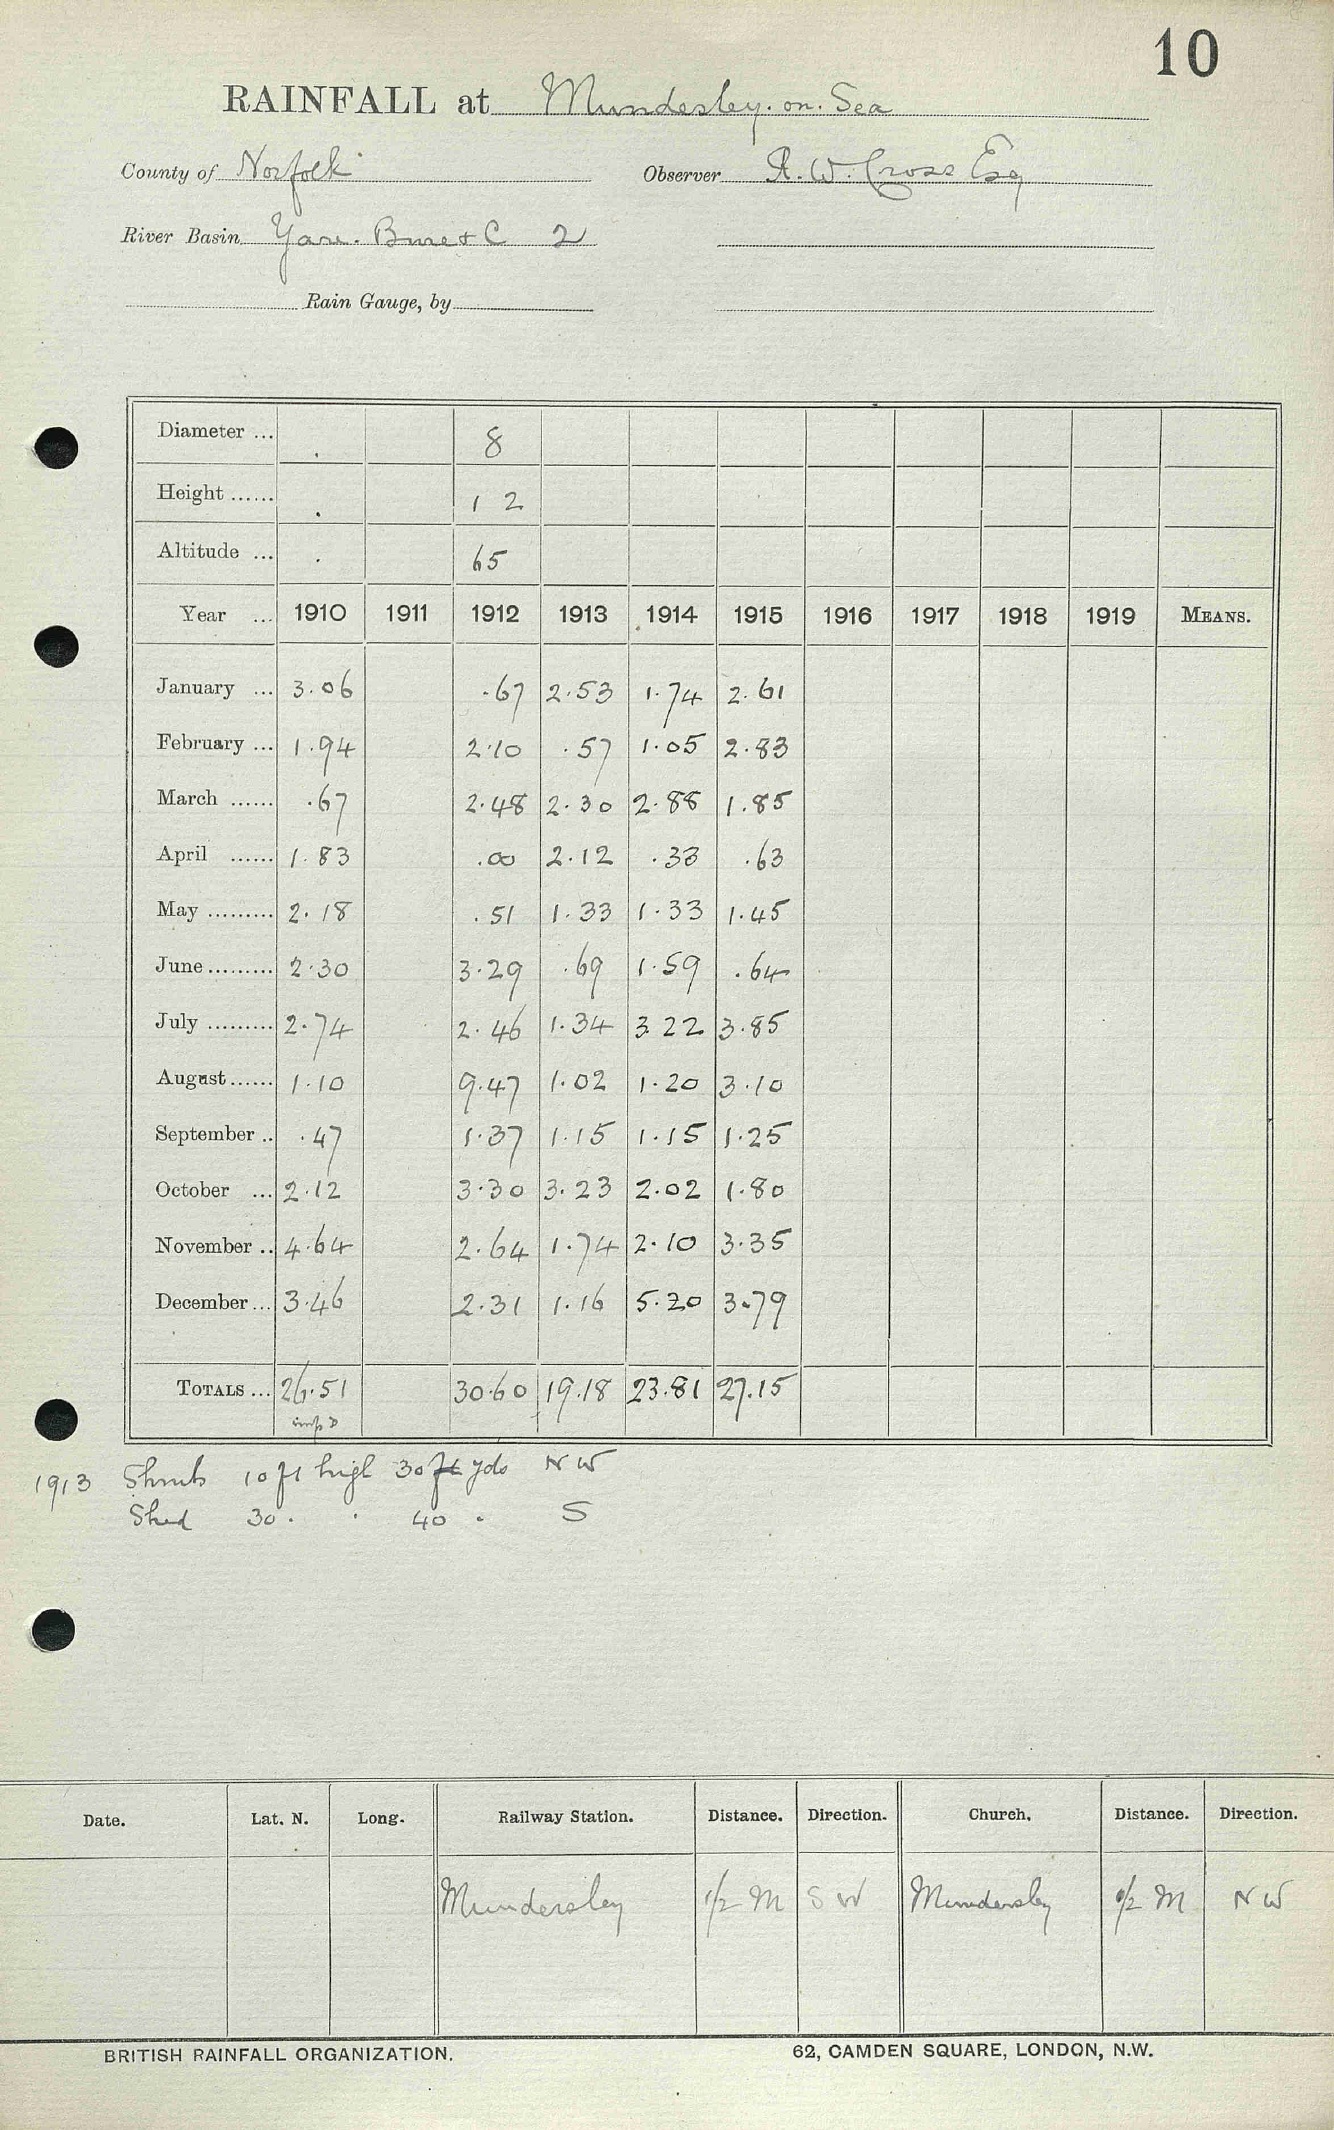 10
RAINFALL at Mundesley. on. Sea
County of Norfolk Observer A. W. Cross Esq
River Basin Yare. Bure & C 2
Rain Gauge, by
Diameter ... 8
Height ...... 12
Altitude ... 65
Year ... 1910 1911 1912 1913 1914 1915 1916 1917 1918 1919 MEANS.
January ... 3.06 .67 2.53 1.74 2.61
February ... 1.94 2.10 .57 1.05 2.83
March ...... .67 2.48 2.30 2.88 1.85
April ...... 1.83 .00 2.12 .33 .63
May ......... 2.18 .51 1.33 1.33 1.45
June ......... 2.30 3.29 .69 1.59 .64
July ......... 2.74 2.46 1.34 3.22 3.85
August ...... 1.10 9.47 1.02 1.20 3.10
September .. .47 1.37 1.15 1.15 1.25
October ... 2.12 3.30 3.23 2.02 1.80
November .. 4.64 2.64 1.74 2.10 3.35
December ... 3.46 2.31 1.16 5.20 3.79
TOTALS ... 26.51 30.60 19.18 23.81 27.15
1913 Shrub 10 ft high 30 ft yds NW
Shed 30 . . 40 . S
Date. Lat. N. Long. Railway Station. Distance. Direction. Church. Distance. Direction.
Mundersley 1/2 M SW Mundersley 1/2 M NW
BRITISH RAINFALL ORGANIZATION. 62, CAMDEN SQUARE, LONDON, N.W.